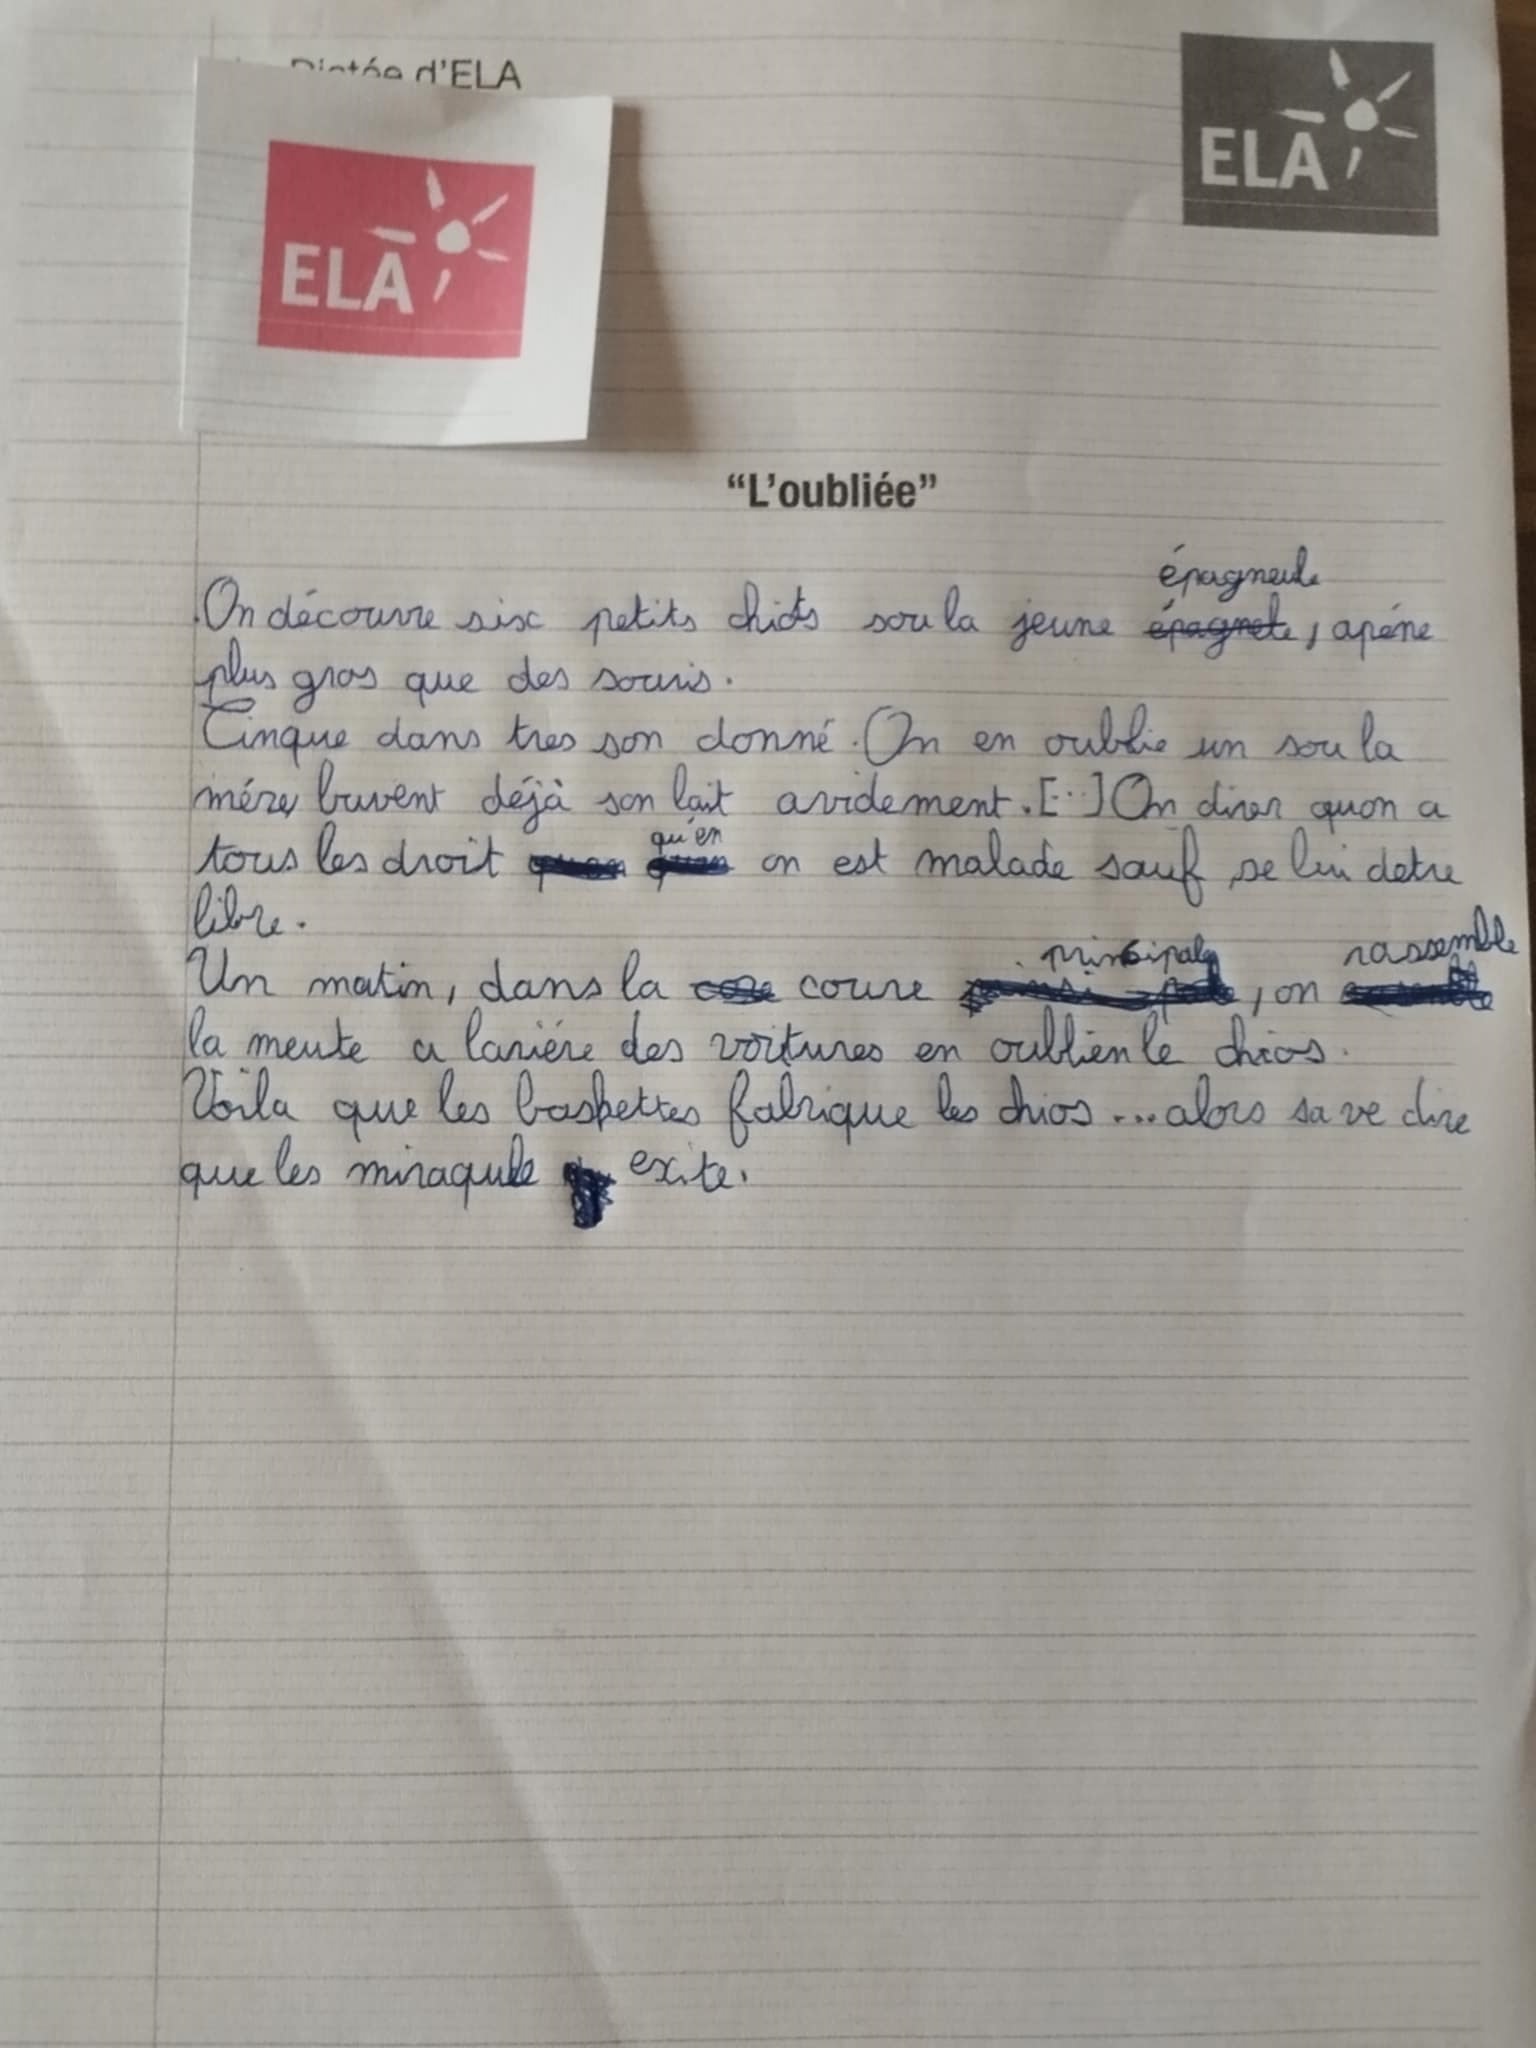 Dictée d'ELA
ELA
ELA
“L'oubliée”
épagneule
On découvre six petits chiots sou la jeune épagnete, apéne
plus gros que des souris.
Cinque dans tres son donné. On en oublie un sou la
mére, buvent déjà son lait avidement. [...] On direr quon a
qu'en
tous les droit on est malade sauf se lui detre
libre.
principale rassemble
Un matin, dans la coure , on
la meute a lariére des voitures en oublien le chios.
Voila que les baskettes fabrique les chios ... alors sa ve dire
que les miraqule exite.